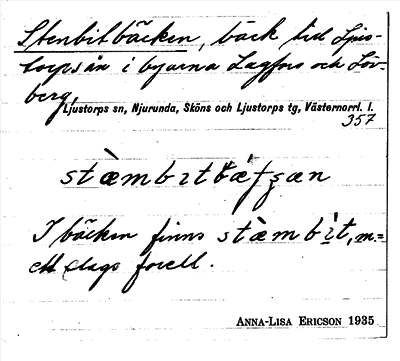 Stenbitbäcken, bäck tid Ljus-
torpsån i byarna Lagfors och Löv-
berg,
Ljustorps sn, Njurunda, Sköns och Ljustorps tg, Västernorrl. l.
357
stæ̀mbɪtbæ´fʂæn
I bäcken finns stæ̀mbɪ̀t, m.=
ett slags forell.
ANNA-LISA ERICSON 1935